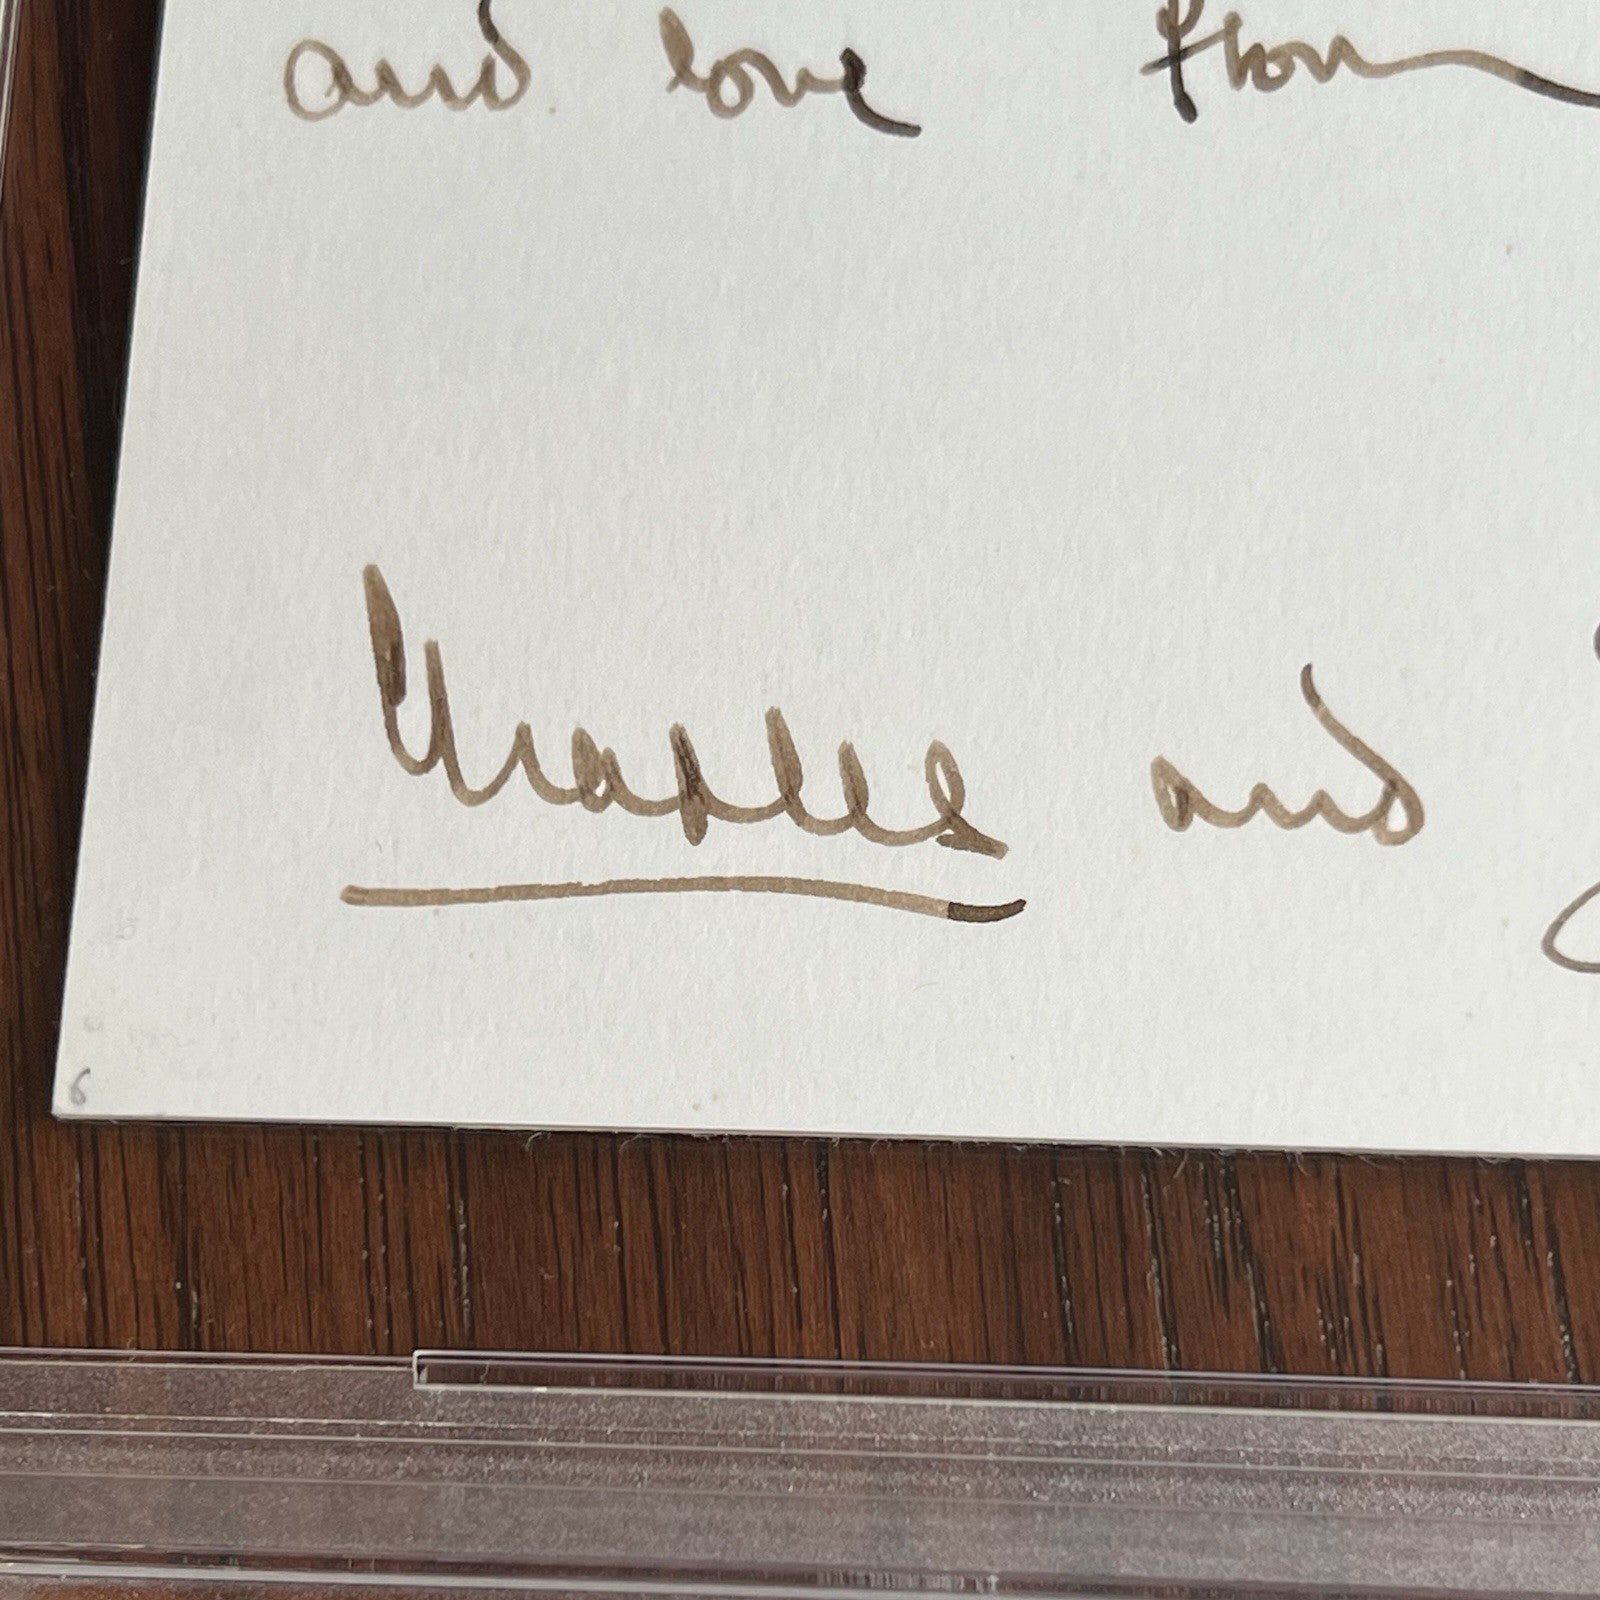 and love from
Charles and
6